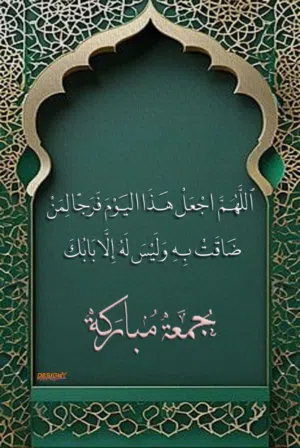 اَللَّهُمَّ اجْعَلْ هَذَا اليَوْمَ فَرَجًا لِمَنْ
ضَاقَتْ بِهِ وَلَيْسَ لَهُ إِلَّا بَابُكَ
جُمعَةٌ مُبَارَكَةٌ
DESIGN